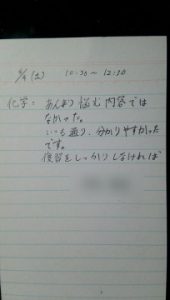 (土) 10:30～12:30
化学: あんまり悩む内容では
なかった。
いつも通り、分かりやすかった
です。
復習をしっかりしなければ